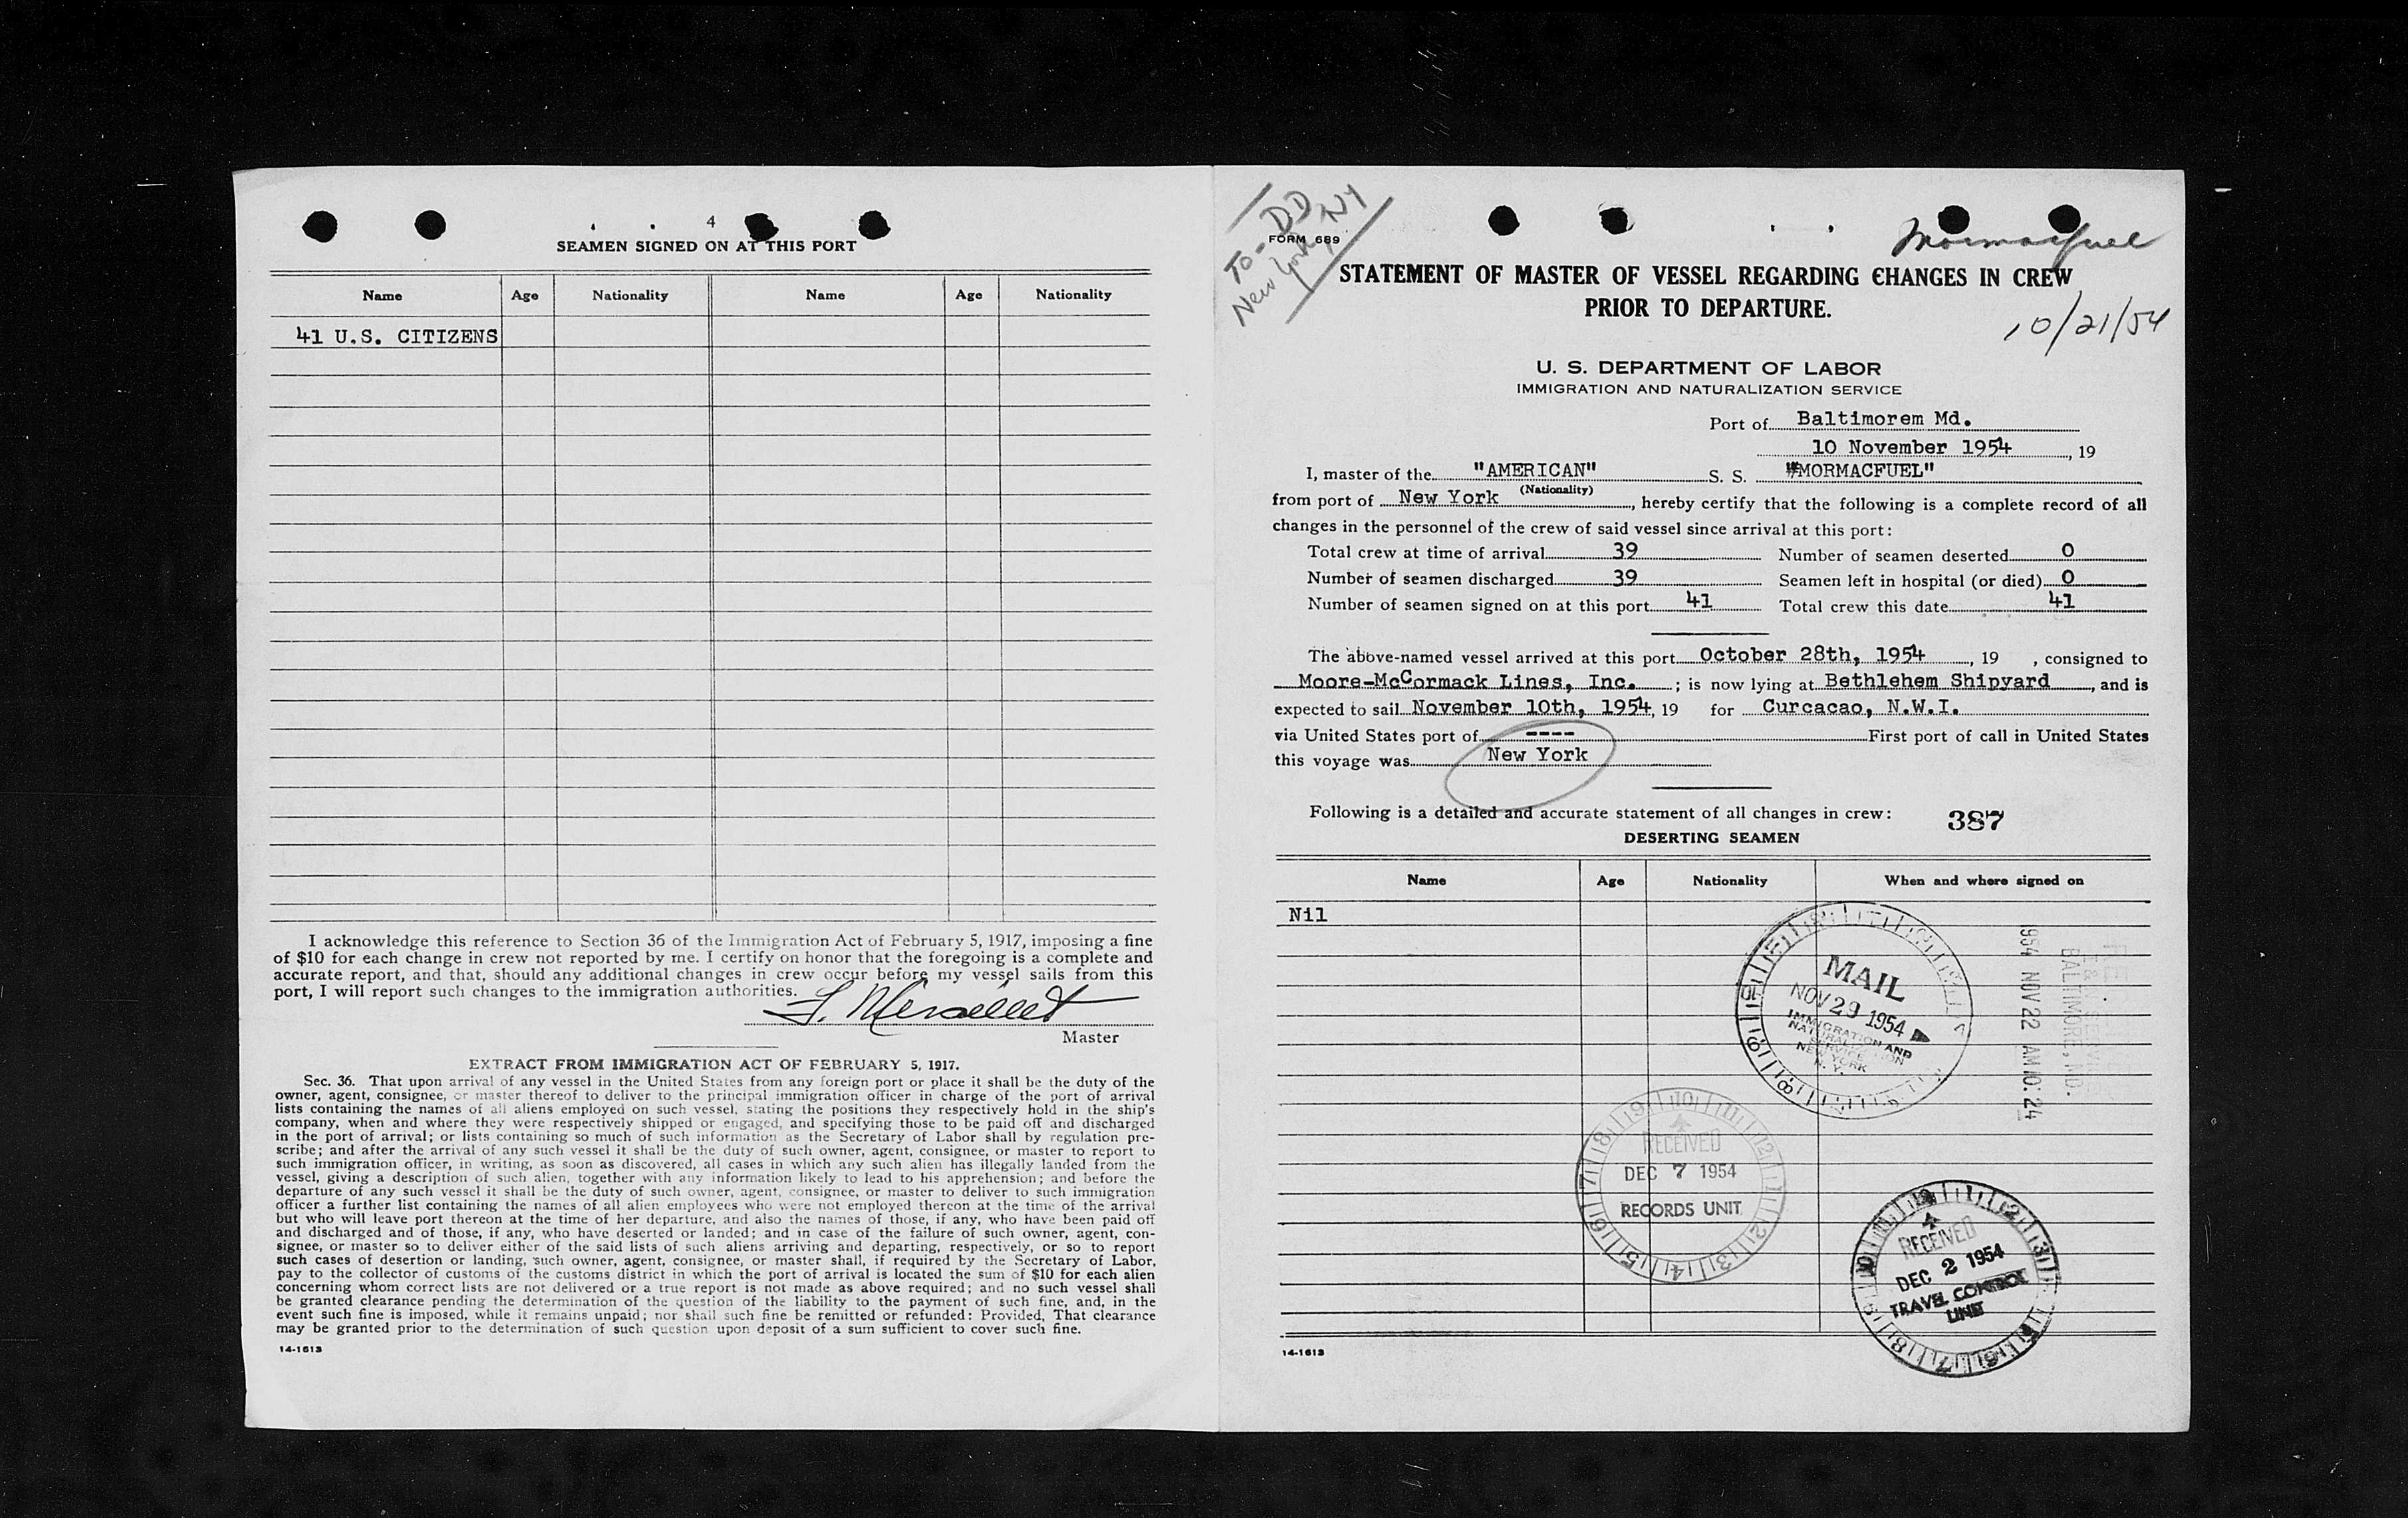 4
SEAMEN SIGNED ON AT THIS PORT
Name Age Nationality Name Age Nationality
41 U.S. CITIZENS
I acknowledge this reference to Section 36 of the Immigration Act of February 5, 1917, imposing a fine
of $10 for each change in crew not reported by me. I certify on honor that the foregoing is a complete and
accurate report, and that, should any additional changes in crew occur before my vessel sails from this
port, I will report such changes to the immigration authorities.
Master
EXTRACT FROM IMMIGRATION ACT OF FEBRUARY 5, 1917.
Sec. 36. That upon arrival of any vessel in the United States from any foreign port or place it shall be the duty of the
owner, agent, consignee, or master thereof to deliver to the principal immigration officer in charge of the port of arrival
lists containing the names of all aliens employed on such vessel, stating the positions they respectively hold in the ship's
company, when and where they were respectively shipped or engaged, and specifying those to be paid off and discharged
in the port of arrival; or lists containing so much of such information as the Secretary of Labor shall by regulation pre-
scribe; and after the arrival of any such vessel it shall be the duty of such owner, agent, consignee, or master to report to
such immigration officer, in writing, as soon as discovered, all cases in which any such alien has illegally landed from the
vessel, giving a description of such alien, together with any information likely to lead to his apprehension; and before the
departure of any such vessel it shall be the duty of such owner, agent, consignee, or master to deliver to such immigration
officer a further list containing the names of all alien employees who were not employed thereon at the time of the arrival
but who will leave port thereon at the time of her departure, and also the names of those, if any, who have been paid off
and discharged and of those, if any, who have deserted or landed; and in case of the failure of such owner, agent, con-
signee, or master so to deliver either of the said lists of such aliens arriving and departing, respectively, or so to report
such cases of desertion or landing, such owner, agent, consignee, or master shall, if required by the Secretary of Labor,
pay to the collector of customs of the customs district in which the port of arrival is located the sum of $10 for each alien
concerning whom correct lists are not delivered or a true report is not made as above required; and no such vessel shall
be granted clearance pending the determination of the question of the liability to the payment of such fine, and, in the
event such fine is imposed, while it remains unpaid; nor shall such fine be remitted or refunded: Provided, That clearance
may be granted prior to the determination of such question upon deposit of a sum sufficient to cover such fine.
14-1613
To - DD
New York, NY
FORM 689
Mormacfuel
STATEMENT OF MASTER OF VESSEL REGARDING CHANGES IN CREW
PRIOR TO DEPARTURE.
10/21/54
U. S. DEPARTMENT OF LABOR
IMMIGRATION AND NATURALIZATION SERVICE
Port of Baltimorem Md.
10 November 1954, 19
I, master of the "AMERICAN" S. S. "MORMACFUEL"
(Nationality)
from port of New York, hereby certify that the following is a complete record of all
changes in the personnel of the crew of said vessel since arrival at this port:
Total crew at time of arrival 39 Number of seamen deserted 0
Number of seamen discharged 39 Seamen left in hospital (or died) 0
Number of seamen signed on at this port 41 Total crew this date 41
The above-named vessel arrived at this port October 28th, 1954, 19 , consigned to
Moore-McCormack Lines, Inc. ; is now lying at Bethlehem Shipyard, and is
expected to sail November 10th, 1954, 19 for Curcacao, N.W.I.
via United States port of ---- First port of call in United States
this voyage was New York
Following is a detailed and accurate statement of all changes in crew: 387
DESERTING SEAMEN
Name Age Nationality When and where signed on
Nil
MAIL
NOV 29 1954
IMMIGRATION AND
NATURALIZATION
SERVICE
NEW YORK
N. Y.
BALTIMORE, MD.
954 NOV 22 AM 10:24
RECEIVED
DEC 7 1954
RECORDS UNIT
RECEIVED
DEC 2 1954
TRAVEL CONTROL
UNIT
14-1613